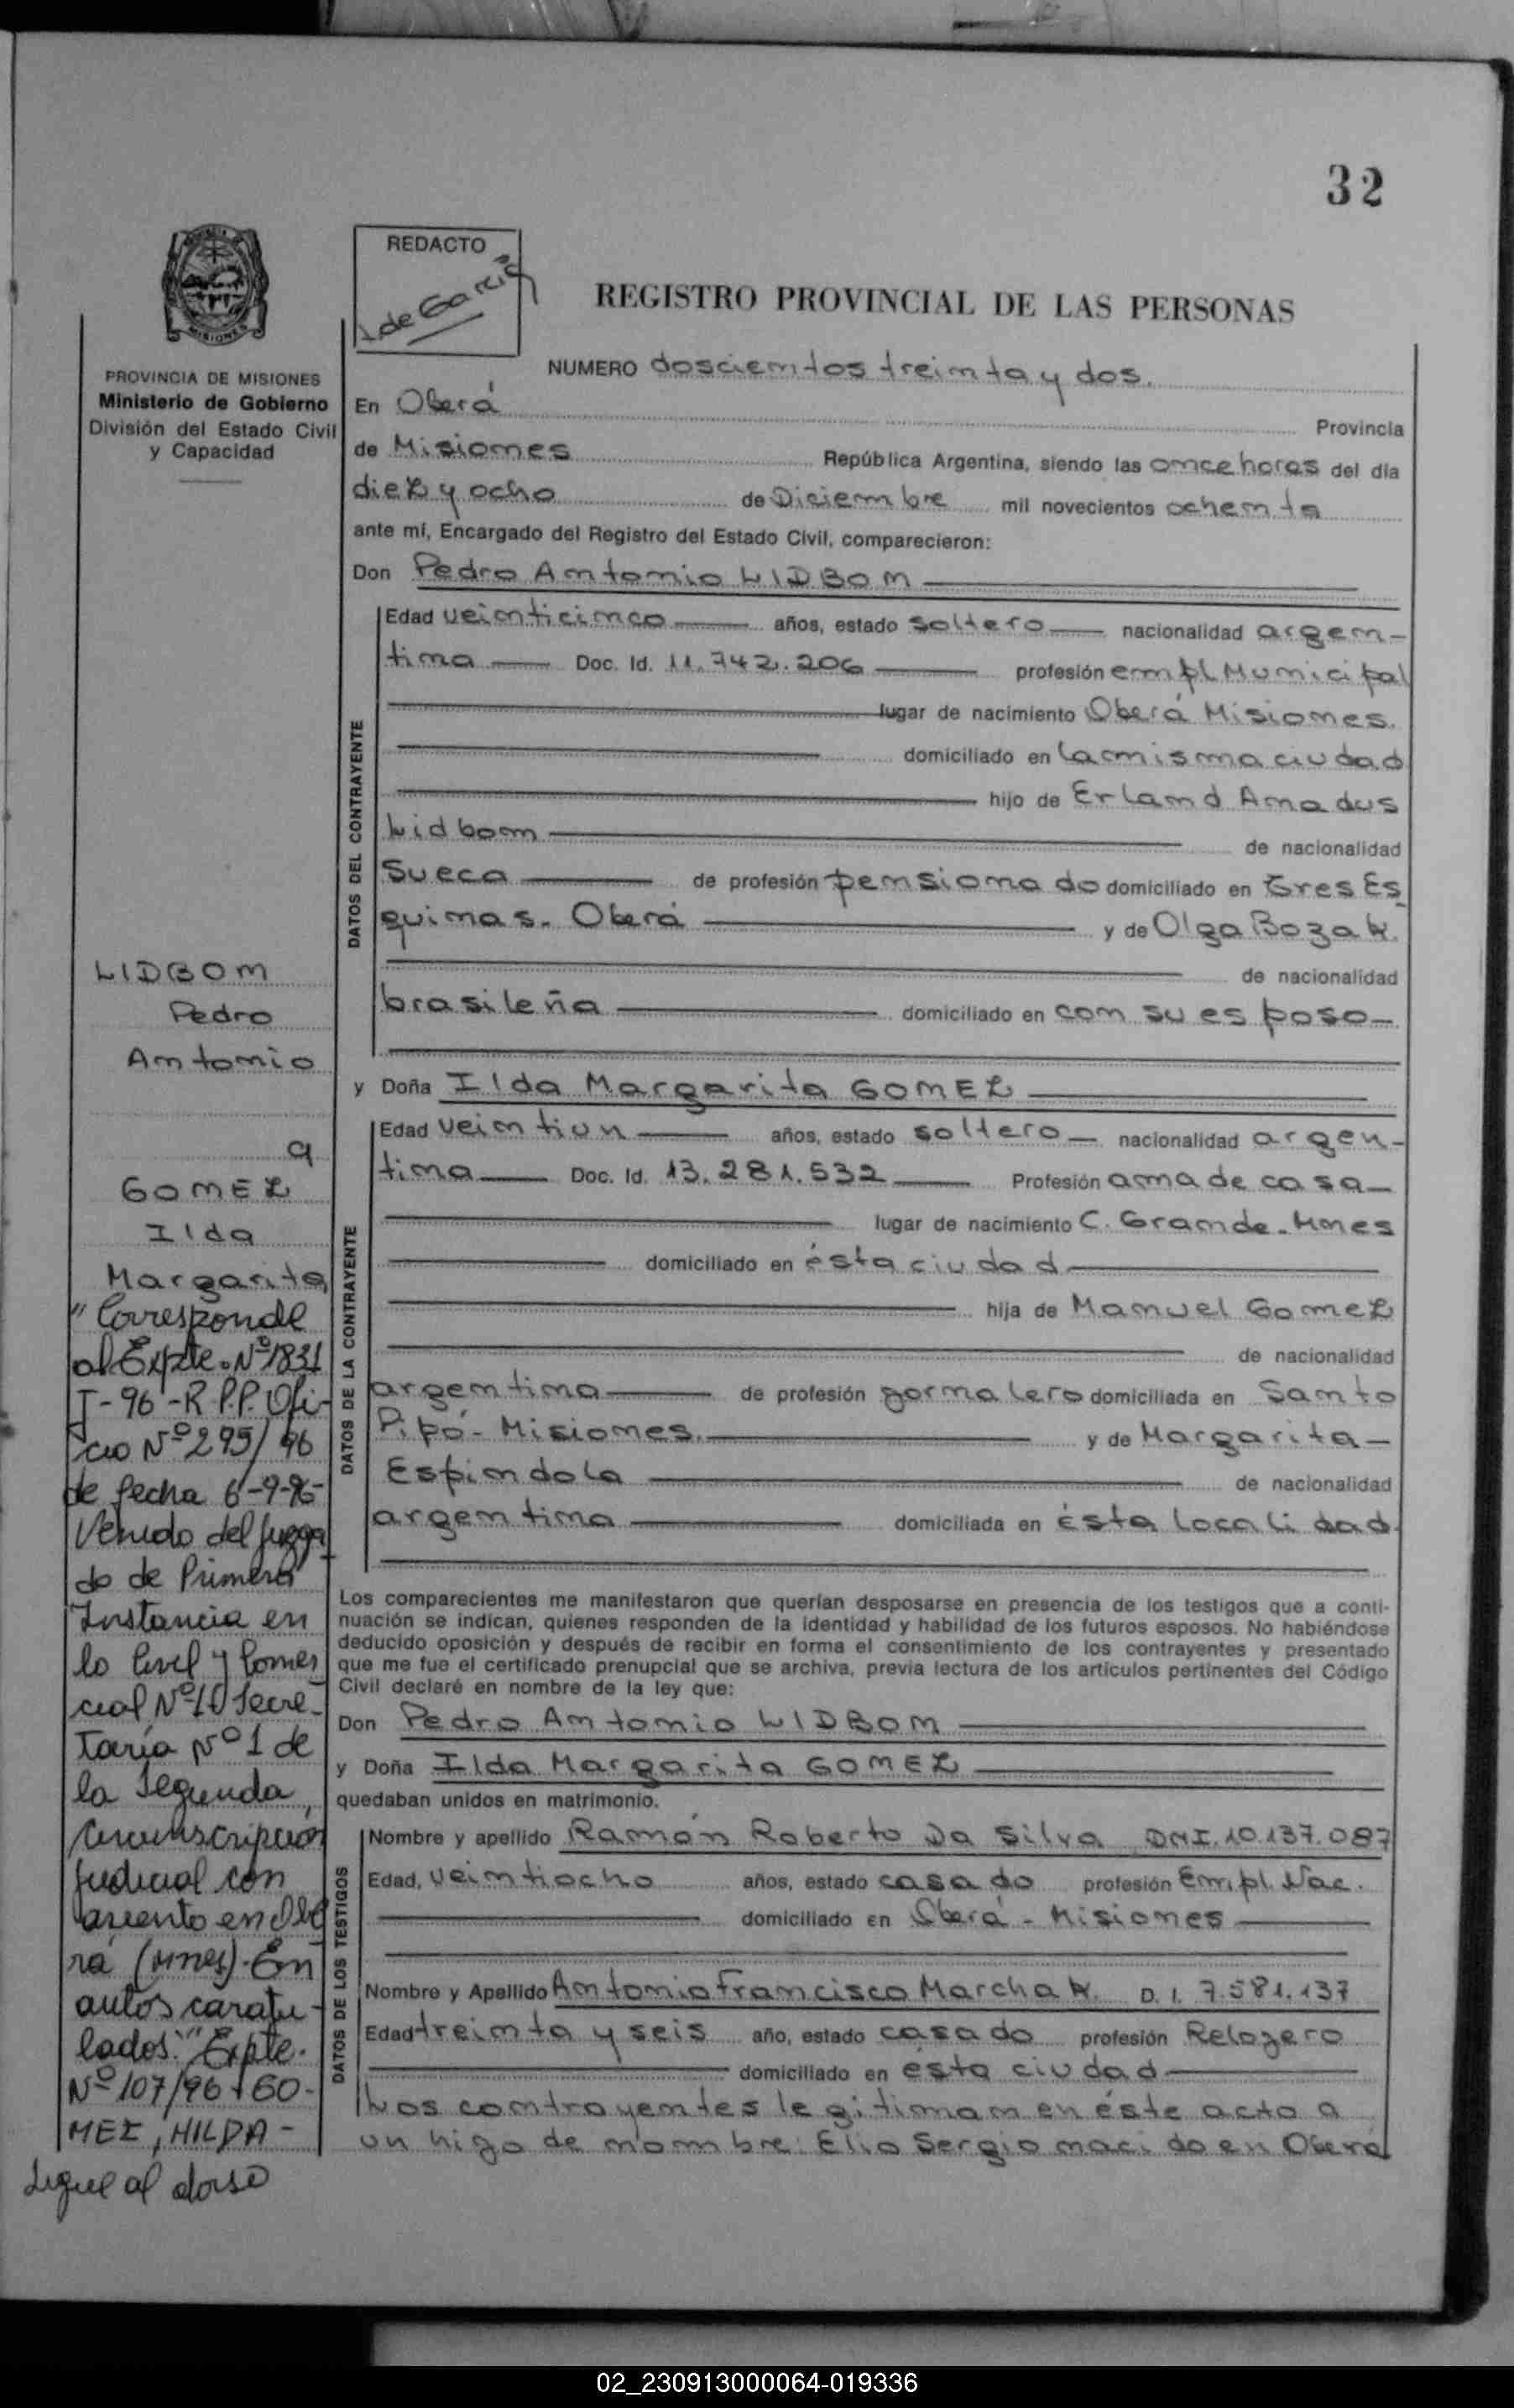 32
REDACTO
I de Garcia
REGISTRO PROVINCIAL DE LAS PERSONAS
PROVINCIA DE MISIONES
Ministerio de Gobierno
División del Estado Civil
y Capacidad
NUMERO doscientos treinta y dos.
En Oberá Provincia
de Misiones República Argentina, siendo las once horas del día
diez y ocho de Diciembre mil novecientos ochenta
ante mí, Encargado del Registro del Estado Civil, comparecieron:
Don Pedro Antonio LIDBOM
DATOS DEL CONTRAYENTE
Edad veinticinco años, estado soltero nacionalidad argen-
tina Doc. Id. 11.742.206 profesión empl Municipal
lugar de nacimiento Oberá Misiones.
domiciliado en la misma ciudad
hijo de Erland Amadus
Lidbom de nacionalidad
Sueca de profesión pensionado domiciliado en Tres Es
quinas. Oberá y de Olga Bozak.
de nacionalidad
brasileña domiciliado en con su esposo-
y Doña Ilda Margarita GOMEZ
DATOS DE LA CONTRAYENTE
Edad veintiun años, estado soltero nacionalidad argen-
tina Doc. Id. 13.281.532 Profesión ama de casa
lugar de nacimiento C. Grande. Mnes
domiciliado en ésta ciudad
hija de Manuel Gomez
de nacionalidad
argentina de profesión jornalero domiciliada en Santo
Pipó - Misiones. y de Margarita
Espindola de nacionalidad
argentina domiciliada en ésta localidad.
Los comparecientes me manifestaron que querían desposarse en presencia de los testigos que a conti-
nuación se indican, quienes responden de la identidad y habilidad de los futuros esposos. No habiéndose
deducido oposición y después de recibir en forma el consentimiento de los contrayentes y presentado
que me fue el certificado prenupcial que se archiva, previa lectura de los artículos pertinentes del Código
Civil declaré en nombre de la ley que:
Don Pedro Antonio LIDBOM
y Doña Ilda Margarita GOMEZ
quedaban unidos en matrimonio.
DATOS DE LOS TESTIGOS
Nombre y apellido Ramón Roberto Da Silva DNI.10.137.087
Edad, veintiocho años, estado casado profesión Empl. Nac.
domiciliado en Oberá - Misiones
Nombre y Apellido Antonio Francisco Marchak. D. I. 7.581.137
Edad treinta y seis año, estado casado profesión Relojero
domiciliado en ésta ciudad
Los contrayentes legitiman en éste acto a
un hijo de nombre: Elio Sergio nacido en Oberá
LIDBOM
Pedro
Antonio
a
GOMEZ
Ilda
Margarita
"Corresponde
al Expte. Nº 1831
I-96-R.P.P. Ofi-
cio Nº 295/96
de fecha 6-9-96-
Venido del Juzga
do de Primera
Instancia en
lo Civil y Comer
cial Nº 10 Secre-
taría Nº 1 de
la Segunda
Circunscripción
Judicial con
asiento en Obe
rá (Mnes). En
autos caratu-
lados: "Expte.
Nº 107/96 GO-
MEZ, HILDA -
Sigue al dorso
02_230913000064-019336